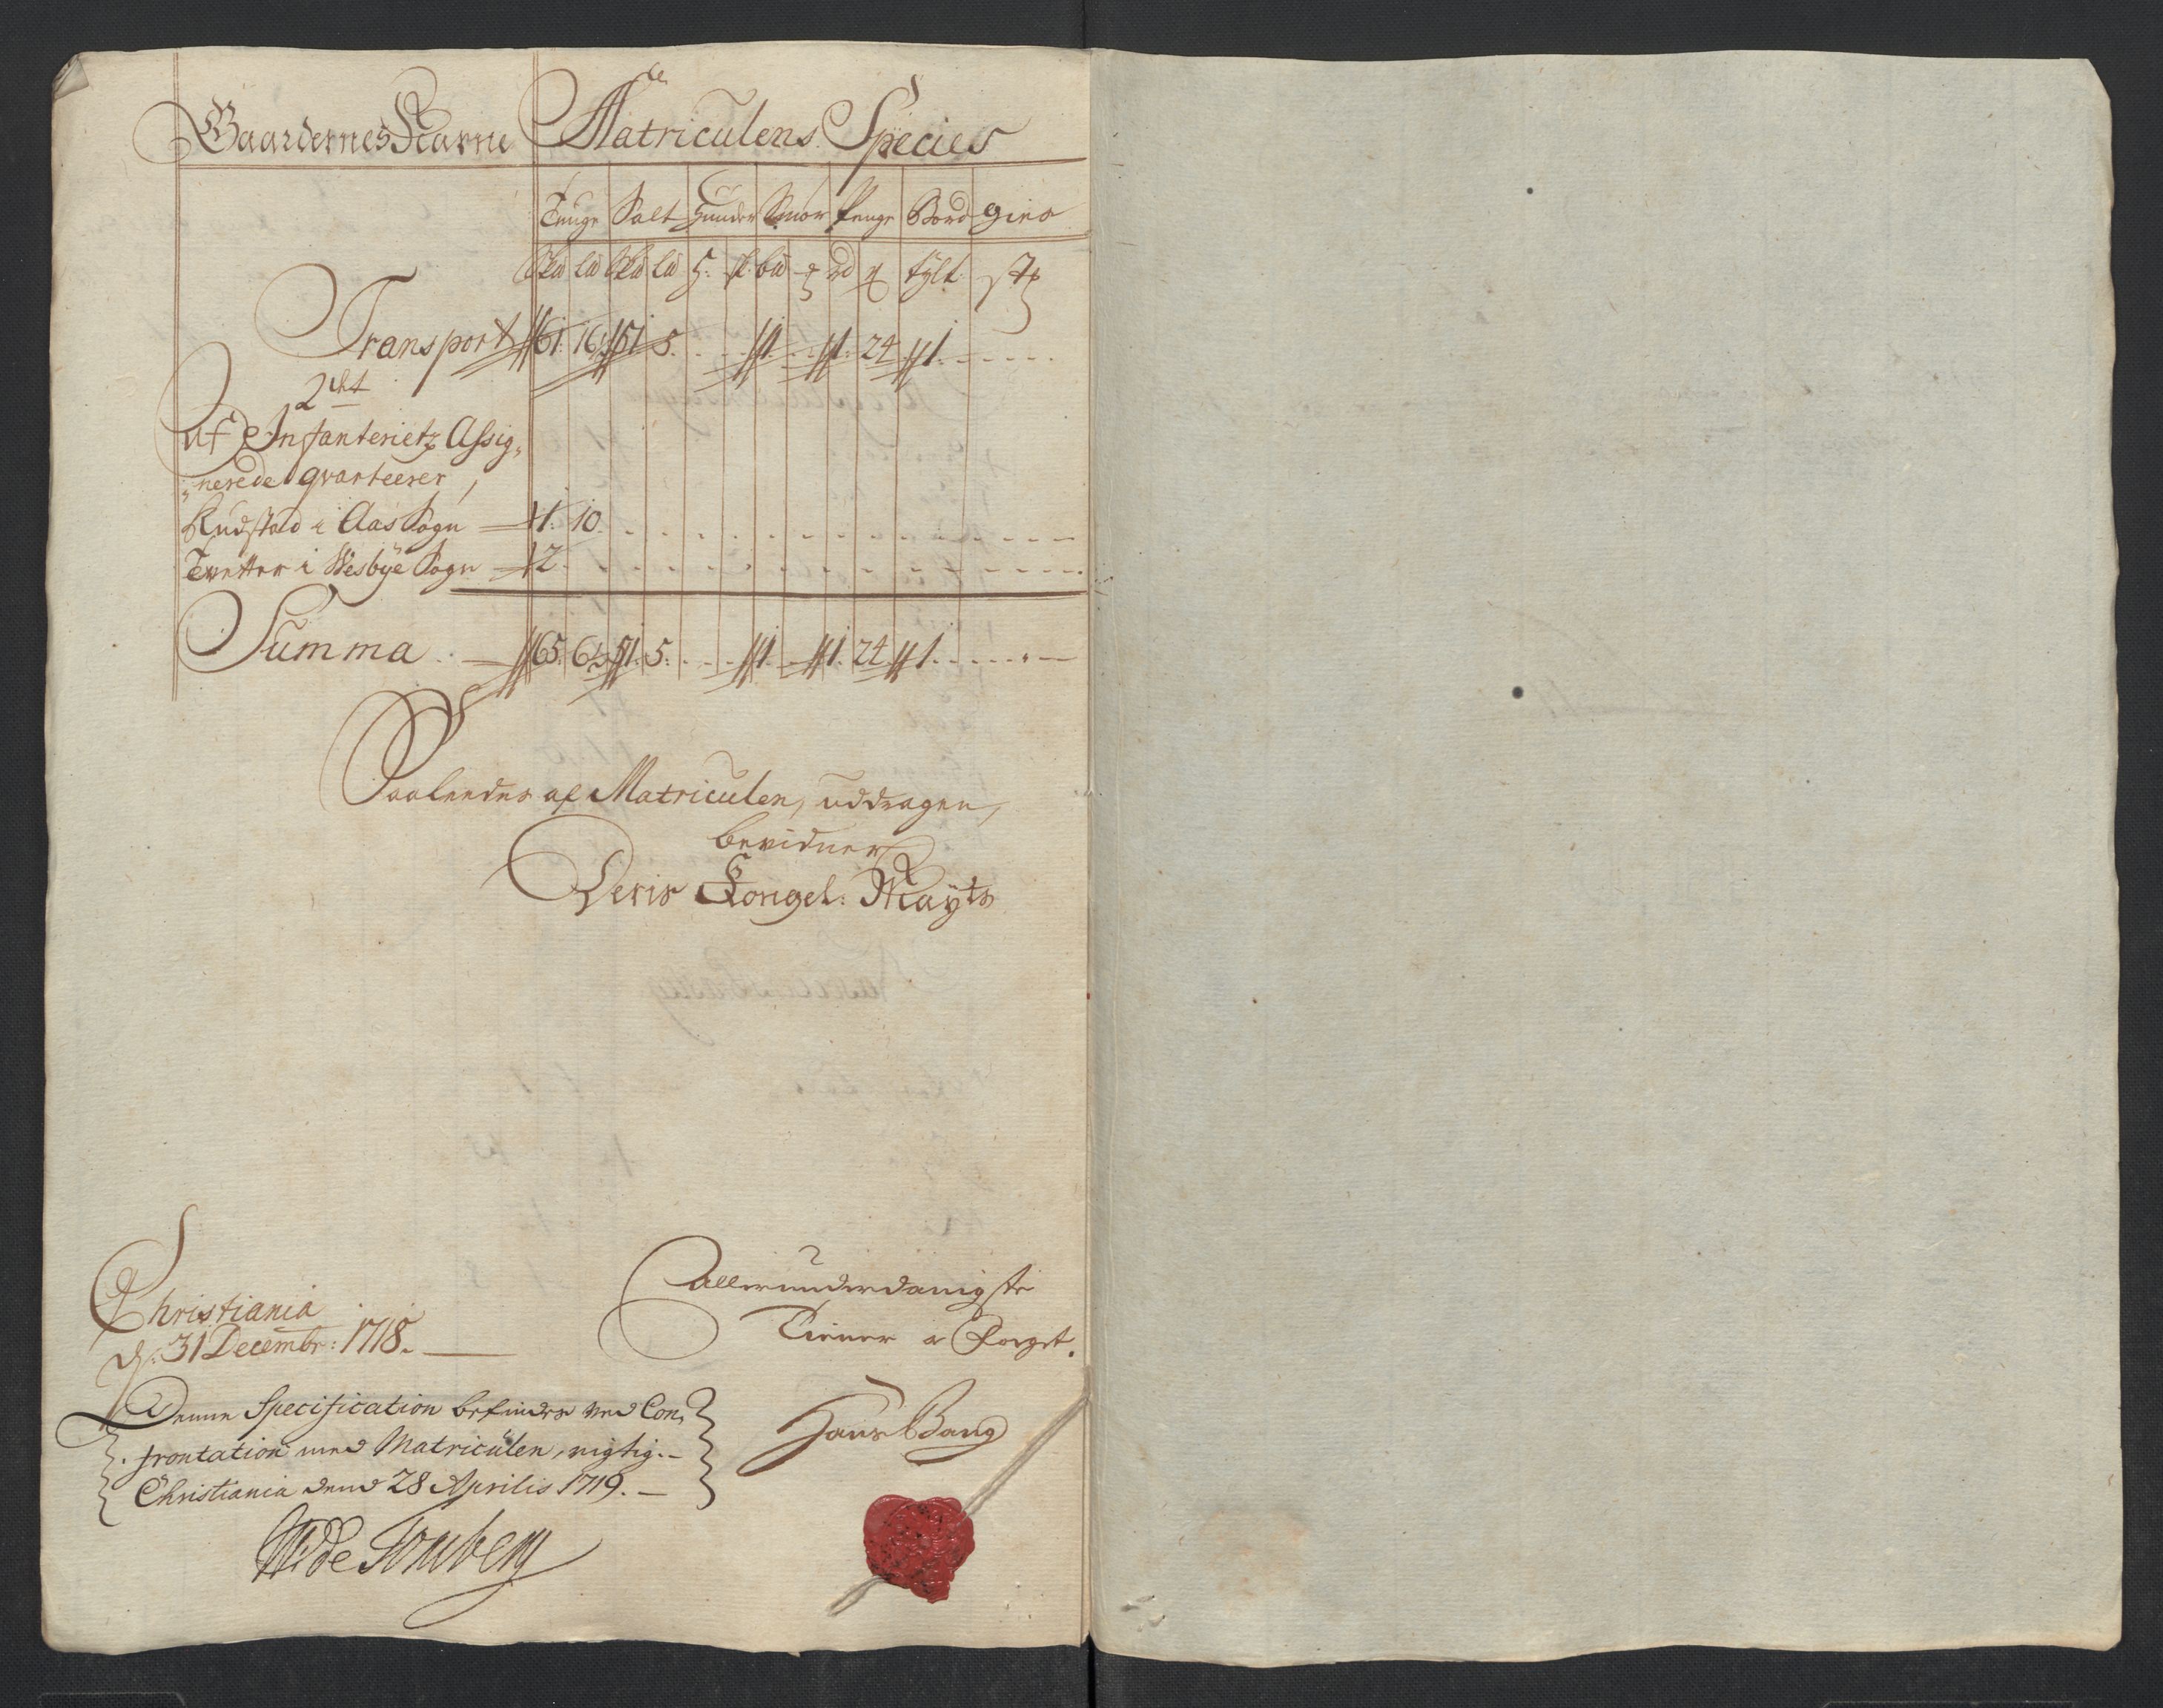 Gaardernes Nafne Matriculens Species
Tunge Salt Hunder Smør Penge Bord gies
Skd Ld Skd Ld H: sk. bd rd tylt
Transport 61: 16½ 51 5. 1. 1. 24 1.
2det
Af Infanteriets Assig„
„nerede qvarteerer,
Rudstad i Aas Sogn 1. 10.
Tvetter i Wesbye Sogn 2.
Summa 65. 6½ 51. 5. 1. 1. 24 1.
Saaleedes af Matriculen, uddragen,
bevidner
Deris Kongel: Mayts
Christiania
d. 31 Decembr: 1718.
allerunderdanigste
Tiener
Denne Specification befindes ved Con„
frontation med Matriculen, rigtig.
Christiania dend 28 Aprilis 1719.
Hans Bang
de Tonsberg